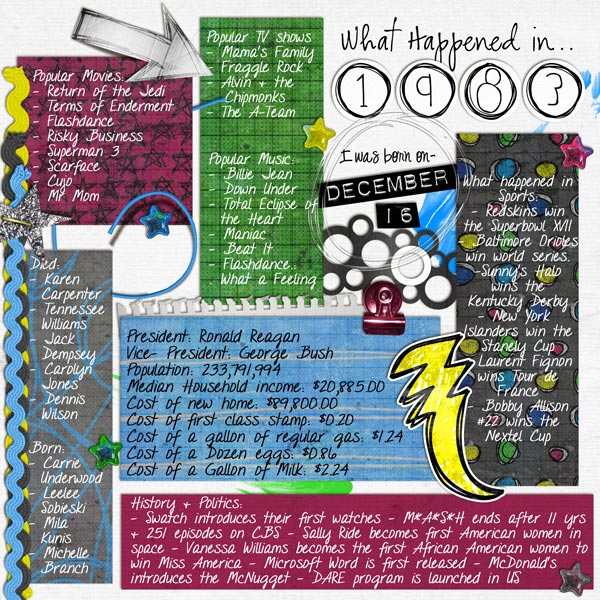 What Happened in...
1983
I was born on-
DECEMBER
16
Popular Movies:
- Return of the Jedi
- Terms of Enderment
- Flashdance
- Risky Business
- Superman 3
- Scarface
- Cujo
- Mr. Mom
Popular TV shows
- Mama's Family
- Fraggle Rock
- Alvin + the
Chipmonks
- The A-Team
Popular Music:
- Billie Jean
- Down Under
- Total Eclipse of
the Heart
- Maniac
- Beat It
- Flashdance...
What a Feeling
What happened in
Sports:
- Redskins win
the Superbowl XVII
- Baltimore Orioles
win world series.
-Sunny's Halo
wins the
Kentucky Derby
- New York
Islanders win the
Stanely Cup
- Laurent Fignon
wins Tour de
France
- Bobby Allison
#22 wins the
Nextel Cup
Died:
- Karen
Carpenter
- Tennessee
Williams
- Jack
Dempsey
- Carolyn
Jones
- Dennis
Wilson
Born:
- Carrie
Underwood
- Leelee
Sobieski
- Mila
Kunis
- Michelle
Branch
President: Ronald Reagan
Vice- President: George Bush
Population: 233,791,994
Median Household income: $20,885.00
Cost of new home: $89,800.00
Cost of first class stamp: $0.20
Cost of a gallon of regular gas: $1.24
Cost of a Dozen eggs: $0.86
Cost of a Gallon of Milk: $2.24
History + Politics:
- Swatch introduces their first watches - M*A*S*H ends after 11 yrs
+ 251 episodes on C.B.S - Sally Ride becomes first American women in
space - Vanessa Williams becomes the first African American women to
win Miss America - Microsoft Word is first released - McDonald's
introduces the McNugget - DARE program is launched in US